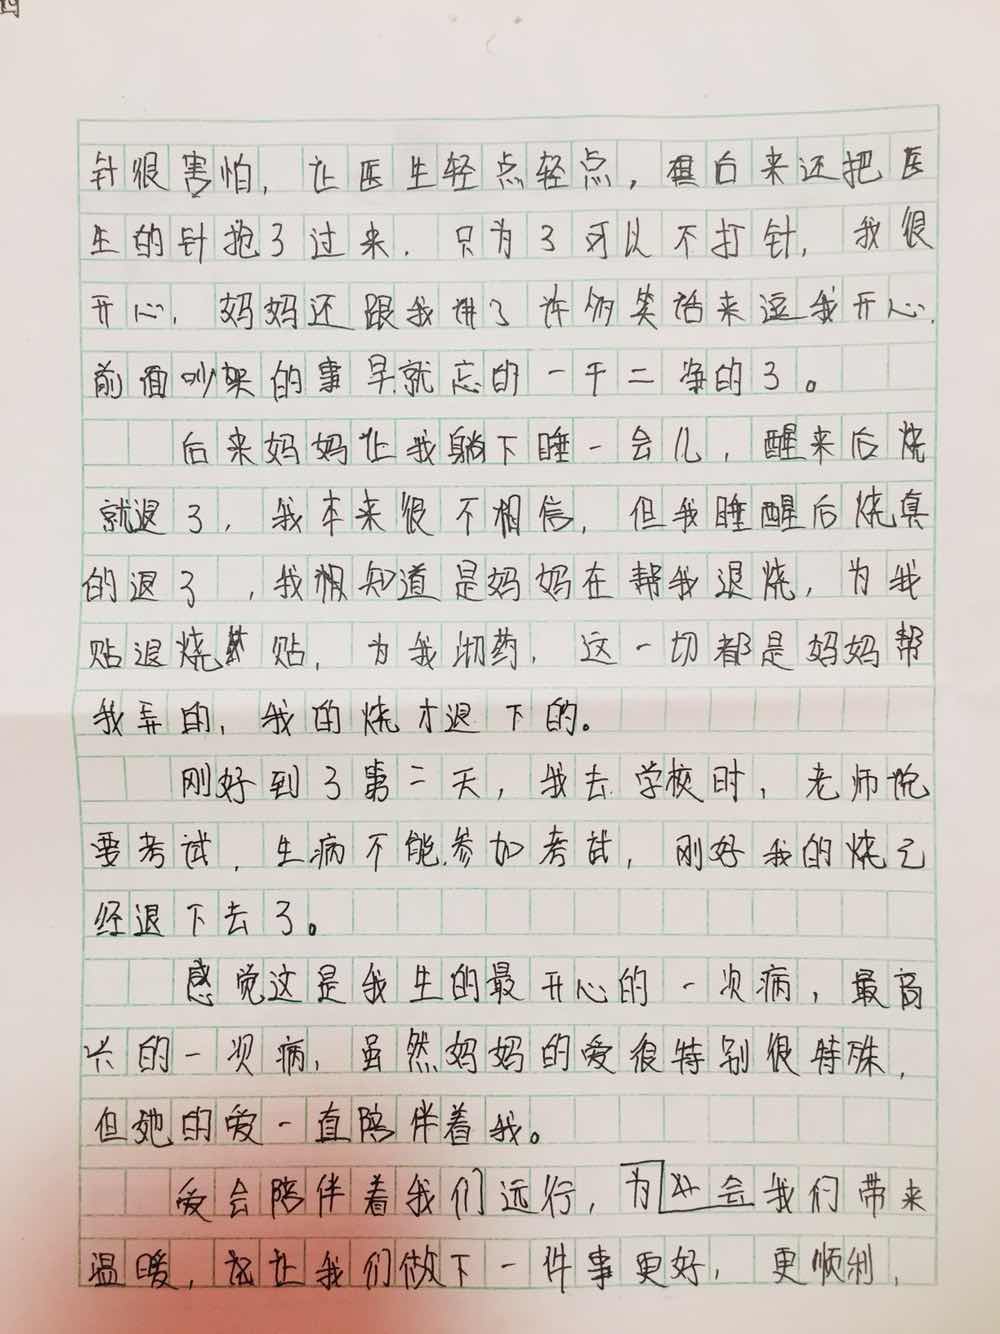 针很害怕，让医生轻点轻点，后来还把医
生的针抱了过来．只为了可以不打针，我很
开心，妈妈还跟我讲了许多笑话来逗我开心．
前面吵架的事早就忘的一干二净的了。
后来妈妈让我躺下睡一会儿，醒来后烧
就退了，我本来很不相信，但我睡醒后烧真
的退了，我知道是妈妈在帮我退烧，为我
贴退烧贴，为我沏药．这一切都是妈妈帮
我弄的，我的烧才退下的。
刚好到了第二天，我去学校时，老师说
要考试，生病不能参加考试，刚好我的烧已
经退下去了。
感觉这是我生的最开心的一次病，最高
兴的一次病，虽然妈妈的爱很特别很特殊，
但她的爱一直陪伴着我。
爱会陪伴着我们远行，为会我们带来
温暖，让我们做下一件事更好，更顺利，